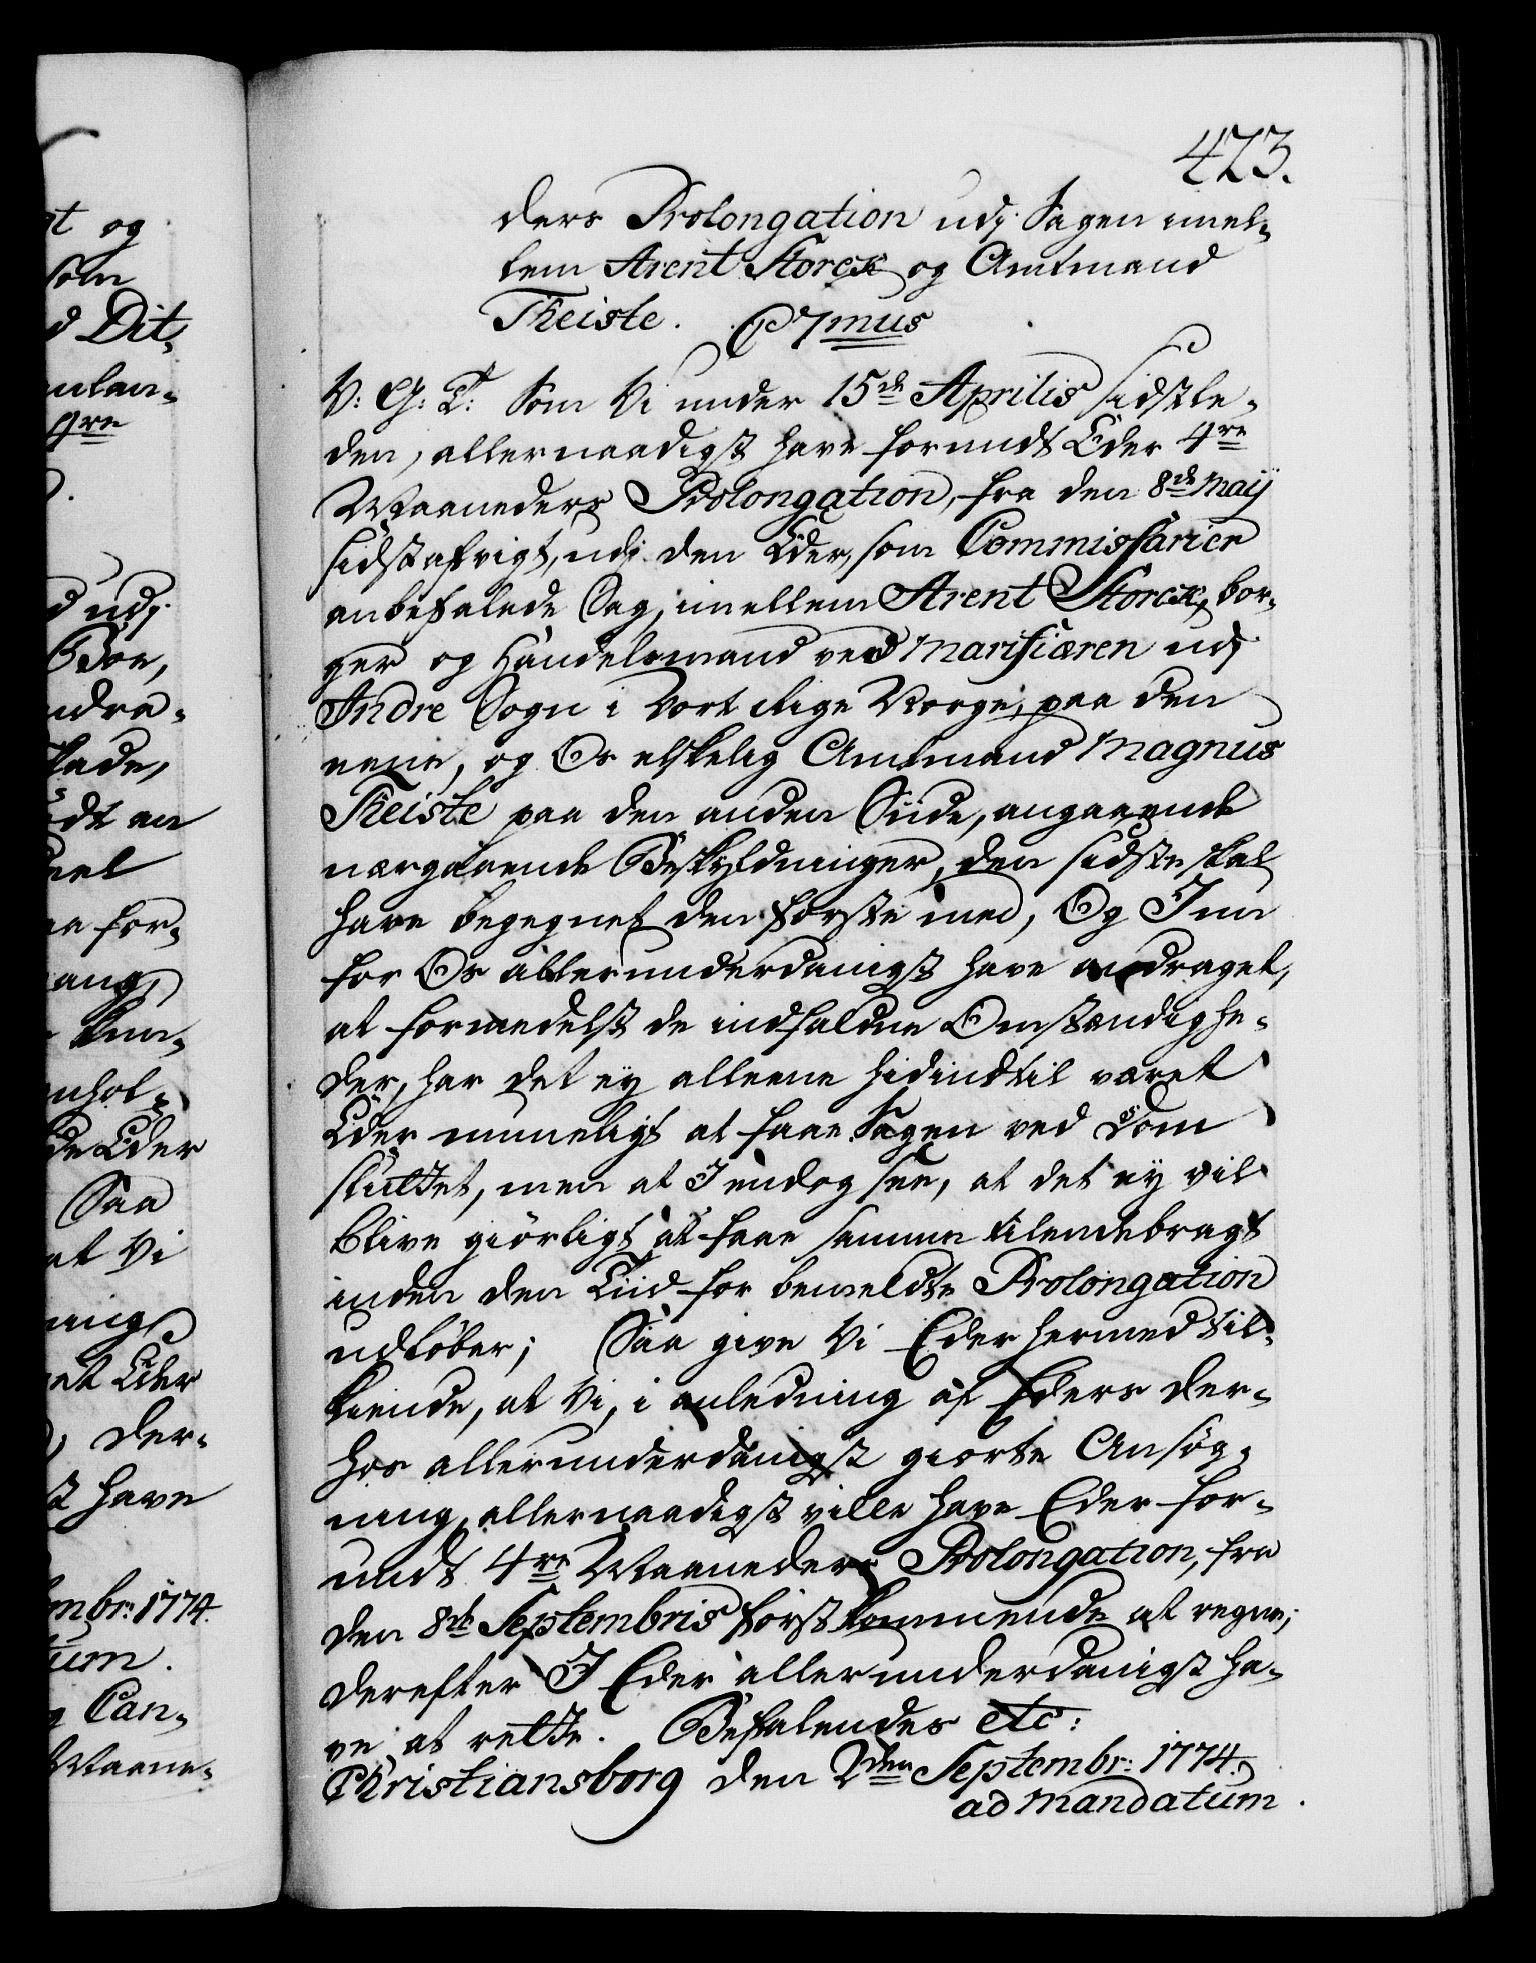 423.
ders Prolongation udj Sagen imel-
lem Arent Storck og Amtmand
Theiste. C 7mus
V: G: T: Som Vi under 15de Aprilis sidstle-
den, allernaadigst have forundt Eder 4re
Maaneders Prolongation, fra den 8de Maij
sidstafvigt, udj den Eder, som Commissarier
anbefalede Sag, imellem Arent Storck, bor-
ger og Handelsmand ved Marifiæren udj
Indre Sogn i Vort Rige Norge, paa den
eene, og Os elskelig Amtmand Magnus
Theiste paa den anden Siide, angaaende
nærgaaende Beskyldninger, den sidste skal
have begegnet den første med, Og I nu
for Os allerunderdanigst have andraget,
at formedelst de indfaldne Omstændighe-
der, har det ej alleene hidindtil været
Eder umueligt at faae Sagen ved Dom
sluttet, men at I endog see, at det ej vil
blive giørligt at faae samme tilendebragt
inden den Tiid for bemeldte Prolongation
udløber; Saa give Vi Eder hermed til-
kiende, at Vi, i anledning af Eders der-
hos allerunderdanigst giorte Ansøg-
ning, allernaadigst ville have Eder for-
undt 4re Maaneders Prolongation, fra
den 8de Septembris førstkommende at regne;
derefter I Eder allerunderdanigst ha-
ve at rette. Befalendes etc:
Christiansborg den 2den Septembr: 1774.
ad mandatum.